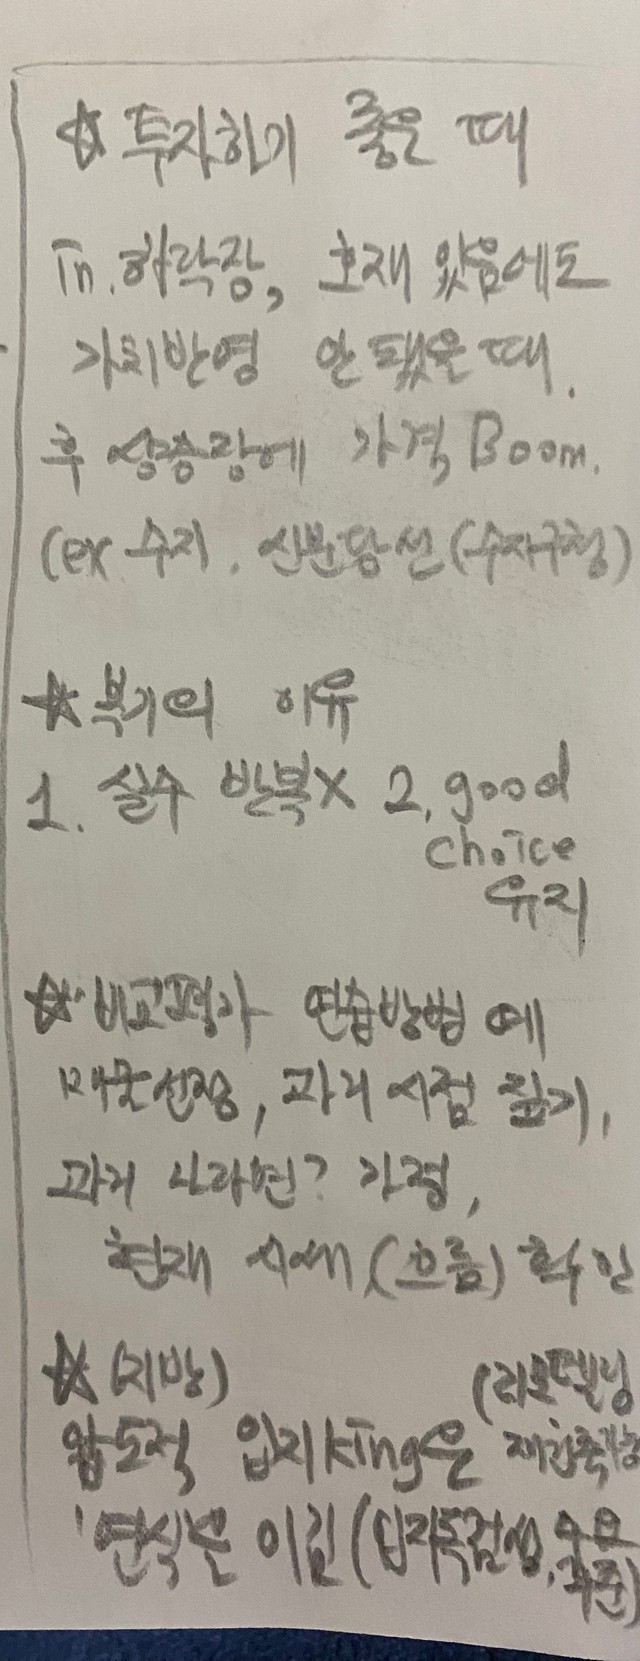 ☆ 투자하기 좋은 때
in. 하락장, 호재 있음에도
가치반영 안 됐을 때.
후 상승장에 가격 Boom.
(ex 수지. 신분당선 (수지구청)
☆ 복기의 이유
1. 실수 반복X 2. good
choice
유지
☆ 비교평가 연습방법 예
매물선정, 과거 시점 짚기,
과거 나라면? 가정,
현재 시세 (흐름) 확인
☆ (지방) (리모델링
압도적 입지king은 재건축가능
연식도 이김 (입지독점성, 수요
수준)